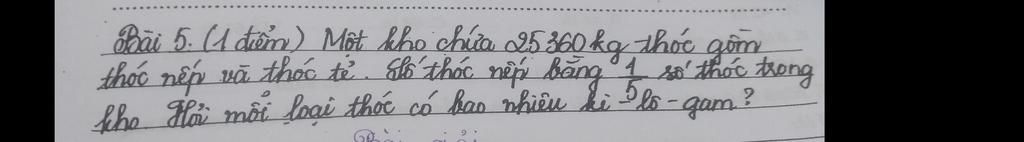 Bài 5. (1 điểm) Một kho chứa 25360kg thóc gồm
thóc nếp và thóc tẻ. Số thóc nếp bằng 1/5 số thóc trong
kho Hỏi mỗi loại thóc có bao nhiêu ki-lô-gam?
Bài giải